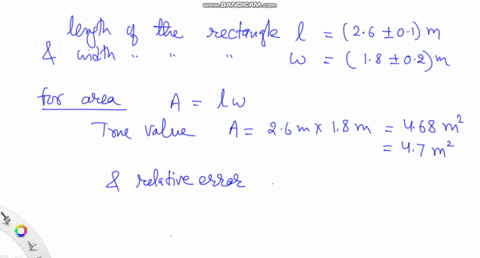 WWW.BANDICAM.COM
length of the rectangle l = (2.6 ± 0.1) m
& width " " " w = (1.8 ± 0.2) m
for area A = lw
True value A = 2.6 m × 1.8 m = 4.68 m²
= 4.7 m²
& relative error